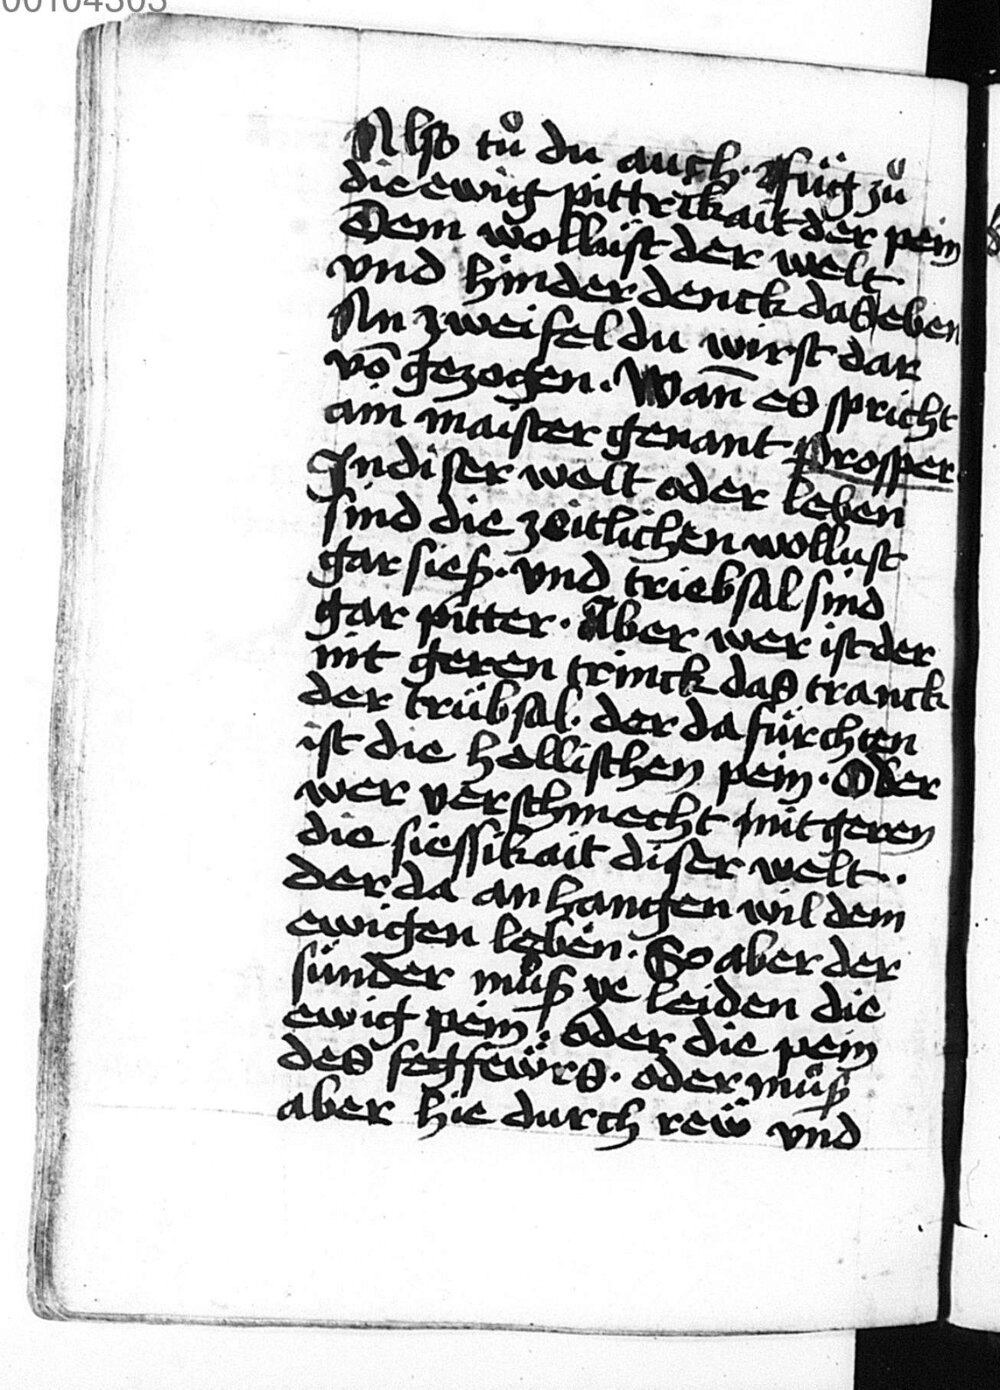 00104303
Also tů du auch. Füg zů
die ewig pittrikait der pein
Dem wollust der welt.
vnd hinder denck das eben
An zweifel du wirst dar
võ gezogen. Wan̄ es spricht
ain maister genant Prosper
In diser welt oder leben
sind die zeitlichen wollust
gar sieß. vnd triebsal sind
gar pitter. Aber wer ist der
nit geren trinck das tranck
der trübsal. der da fürchten
ist die hellischen pein. Oder
wer verschmecht nit geren
die siessikait diser welt.
der da anhangen wil dem
ewigen leben. So aber der
sünder můß ye leiden die
ewig pein. oder die pein
des fegfeẅrs. oder můß
aber hie durch reẅ vnd